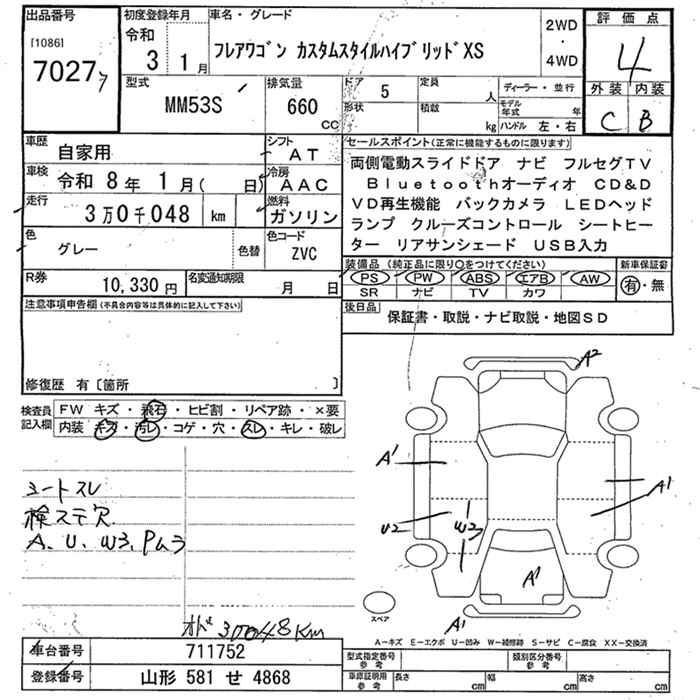 出品番号
[1086]
7027
初度登録年月
令和
3 1月
車名・グレード
フレアワゴン カスタムスタイルハイブリッドXS
2WD
・
4WD
評価点
4
外装 内装
C B
型式
MM53S
排気量
660
CC
ドア 5
形状
定員
人
積載
kg
ディーラー・並行
モデル年式 年
ハンドル 左・右
車歴
自家用
シフト
AT
車検 令和 8年 1月( 日)
冷房
AAC
走行
3万0千048 km
燃料
ガソリン
色
グレー
色替
色コード
ZVC
R券
10,330円
名変通知期限
月 日
セールスポイント(正常に機能するものに限ります)
両側電動スライドドア ナビ フルセグTV
Bluetoothオーディオ CD&D
VD再生機能 バックカメラ LEDヘッド
ランプ クルーズコントロール シートヒー
ター リアサンシェード USB入力
装備品(純正品に限り○をつけてください)
PS PW ABS エアB AW
SR ナビ TV カワ
新車保証書
有・無
後日品
保証書・取説・ナビ取説・地図SD
注意事項申告欄(不具合内容等は具体的に記入して下さい)
修復歴 有〔箇所 〕
検査員
記入欄
FW キズ・飛石・ヒビ割・リペア跡・×要
内装 キズ・汚レ・コゲ・穴・スレ・キレ・破レ
シートスレ
検ステ穴
A、U、W3、Pムラ
オド 30048Km
A2
A1
A1
U2
W3
A1
A1
スペア
A-キズ E-エクボ U-凹み W-補修跡 S-サビ C-腐食 XX-交換済
車台番号
711752
登録番号
山形 581 せ 4868
型式指定番号
参考
類別区分番号
参考
車庫証明用
参考
長さ cm
幅 cm
高さ cm